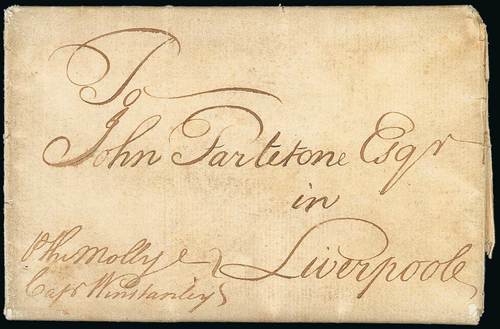 To
John Tarletone Esqr
in
Liverpoole
Molly
Capt Winstanley